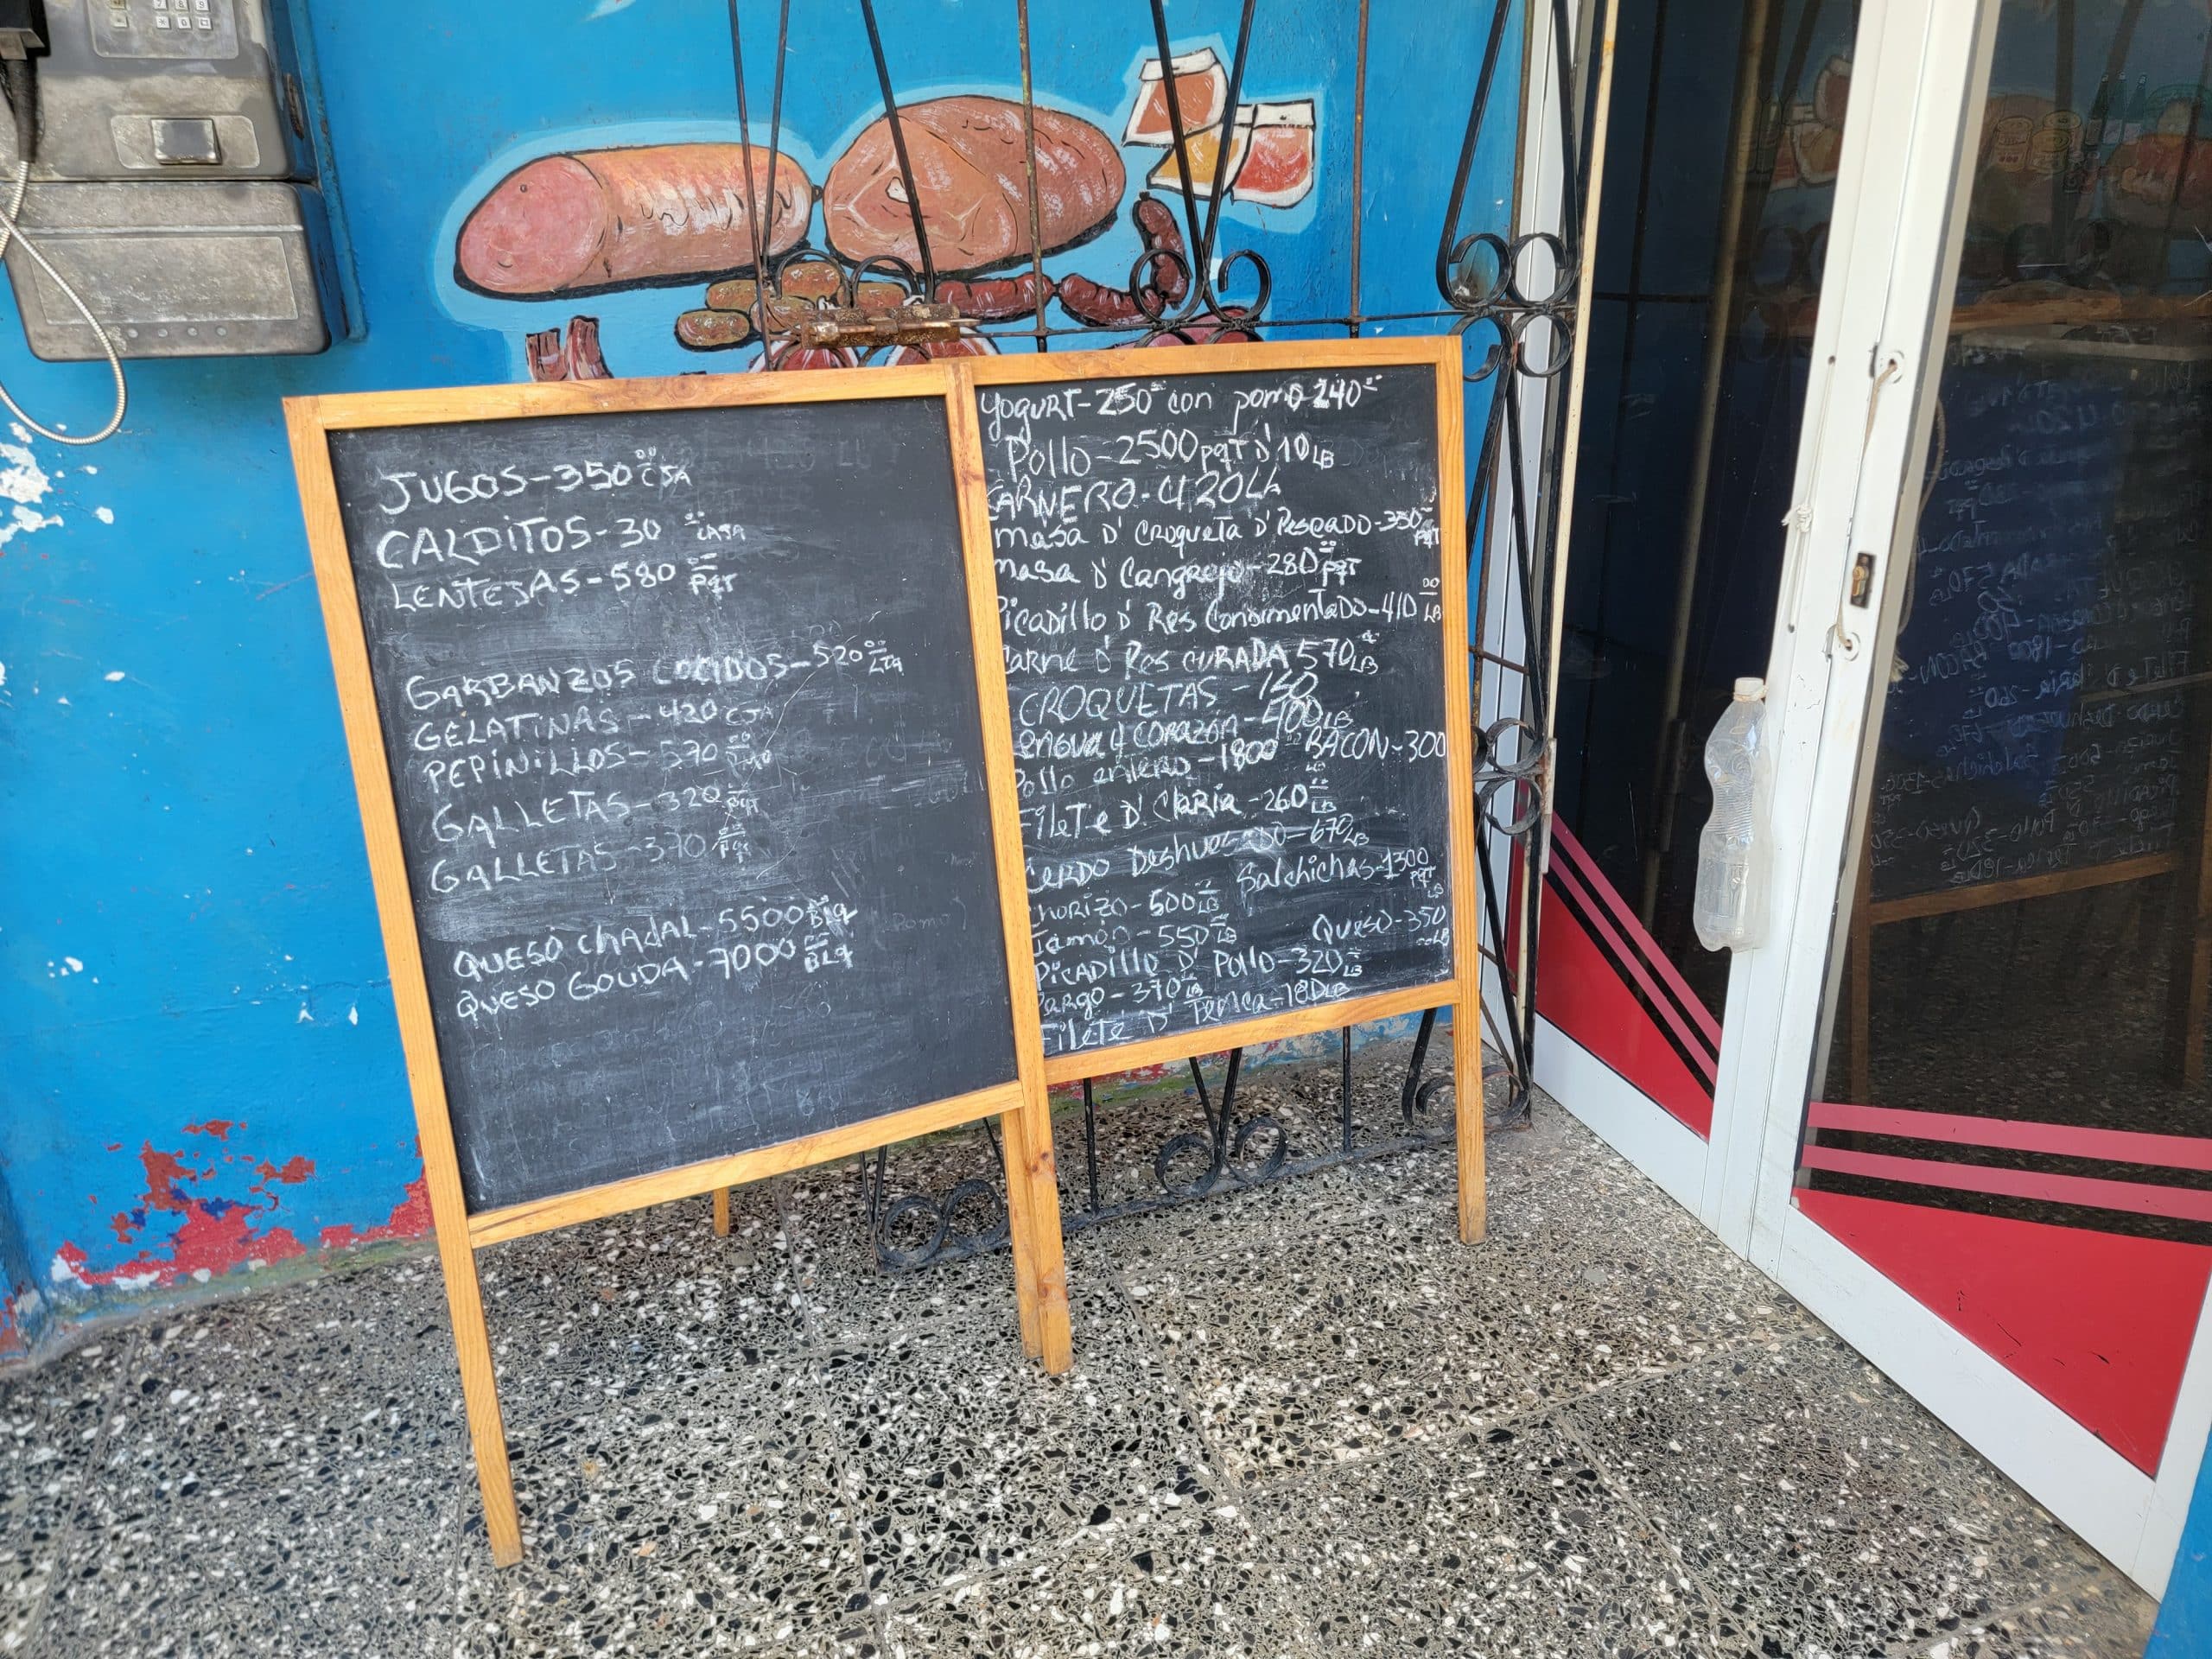 JUGOS-350.00 CJA
CALDITOS-30.00 CASA
LENTEJAS-580.00 PQT
GARBANZOS COCIDOS-520.00 LTA
GELATINAS-420 CJA
PEPINILLOS-570.00
GALLETAS-320.00 PQT
GALLETAS-370.00 PQT
QUESO CHADAL-5500.00 BLQ
QUESO GOUDA-7000.00 BLQ
Yogurt-250.00 con pomo-240.00
Pollo-2500 pqt D'10 LB
CARNERO-420 Lb
masa D' Croqueta D' Pescado-350.00 PQT
masa D' Cangrejo-280.00 PQT
Picadillo D' Res Condimentado-410.00 LB
Carne D' Res CURADA 570.00 LB
CROQUETAS-
Lengua y CORAZÓN-400 LB
Pollo entero-1800.00 BACON-300 LB
Filete D' Claria-260.00 LB
CERDO Deshuesado-670 LB
Salchichas-1300 PQT
Chorizo-500.00 LB
Jamón-550.00 LB Queso-350.00 LB
Picadillo D' Pollo-320.00 LB
Pargo-370.00 LB
Filete D' Tenca-180 LB